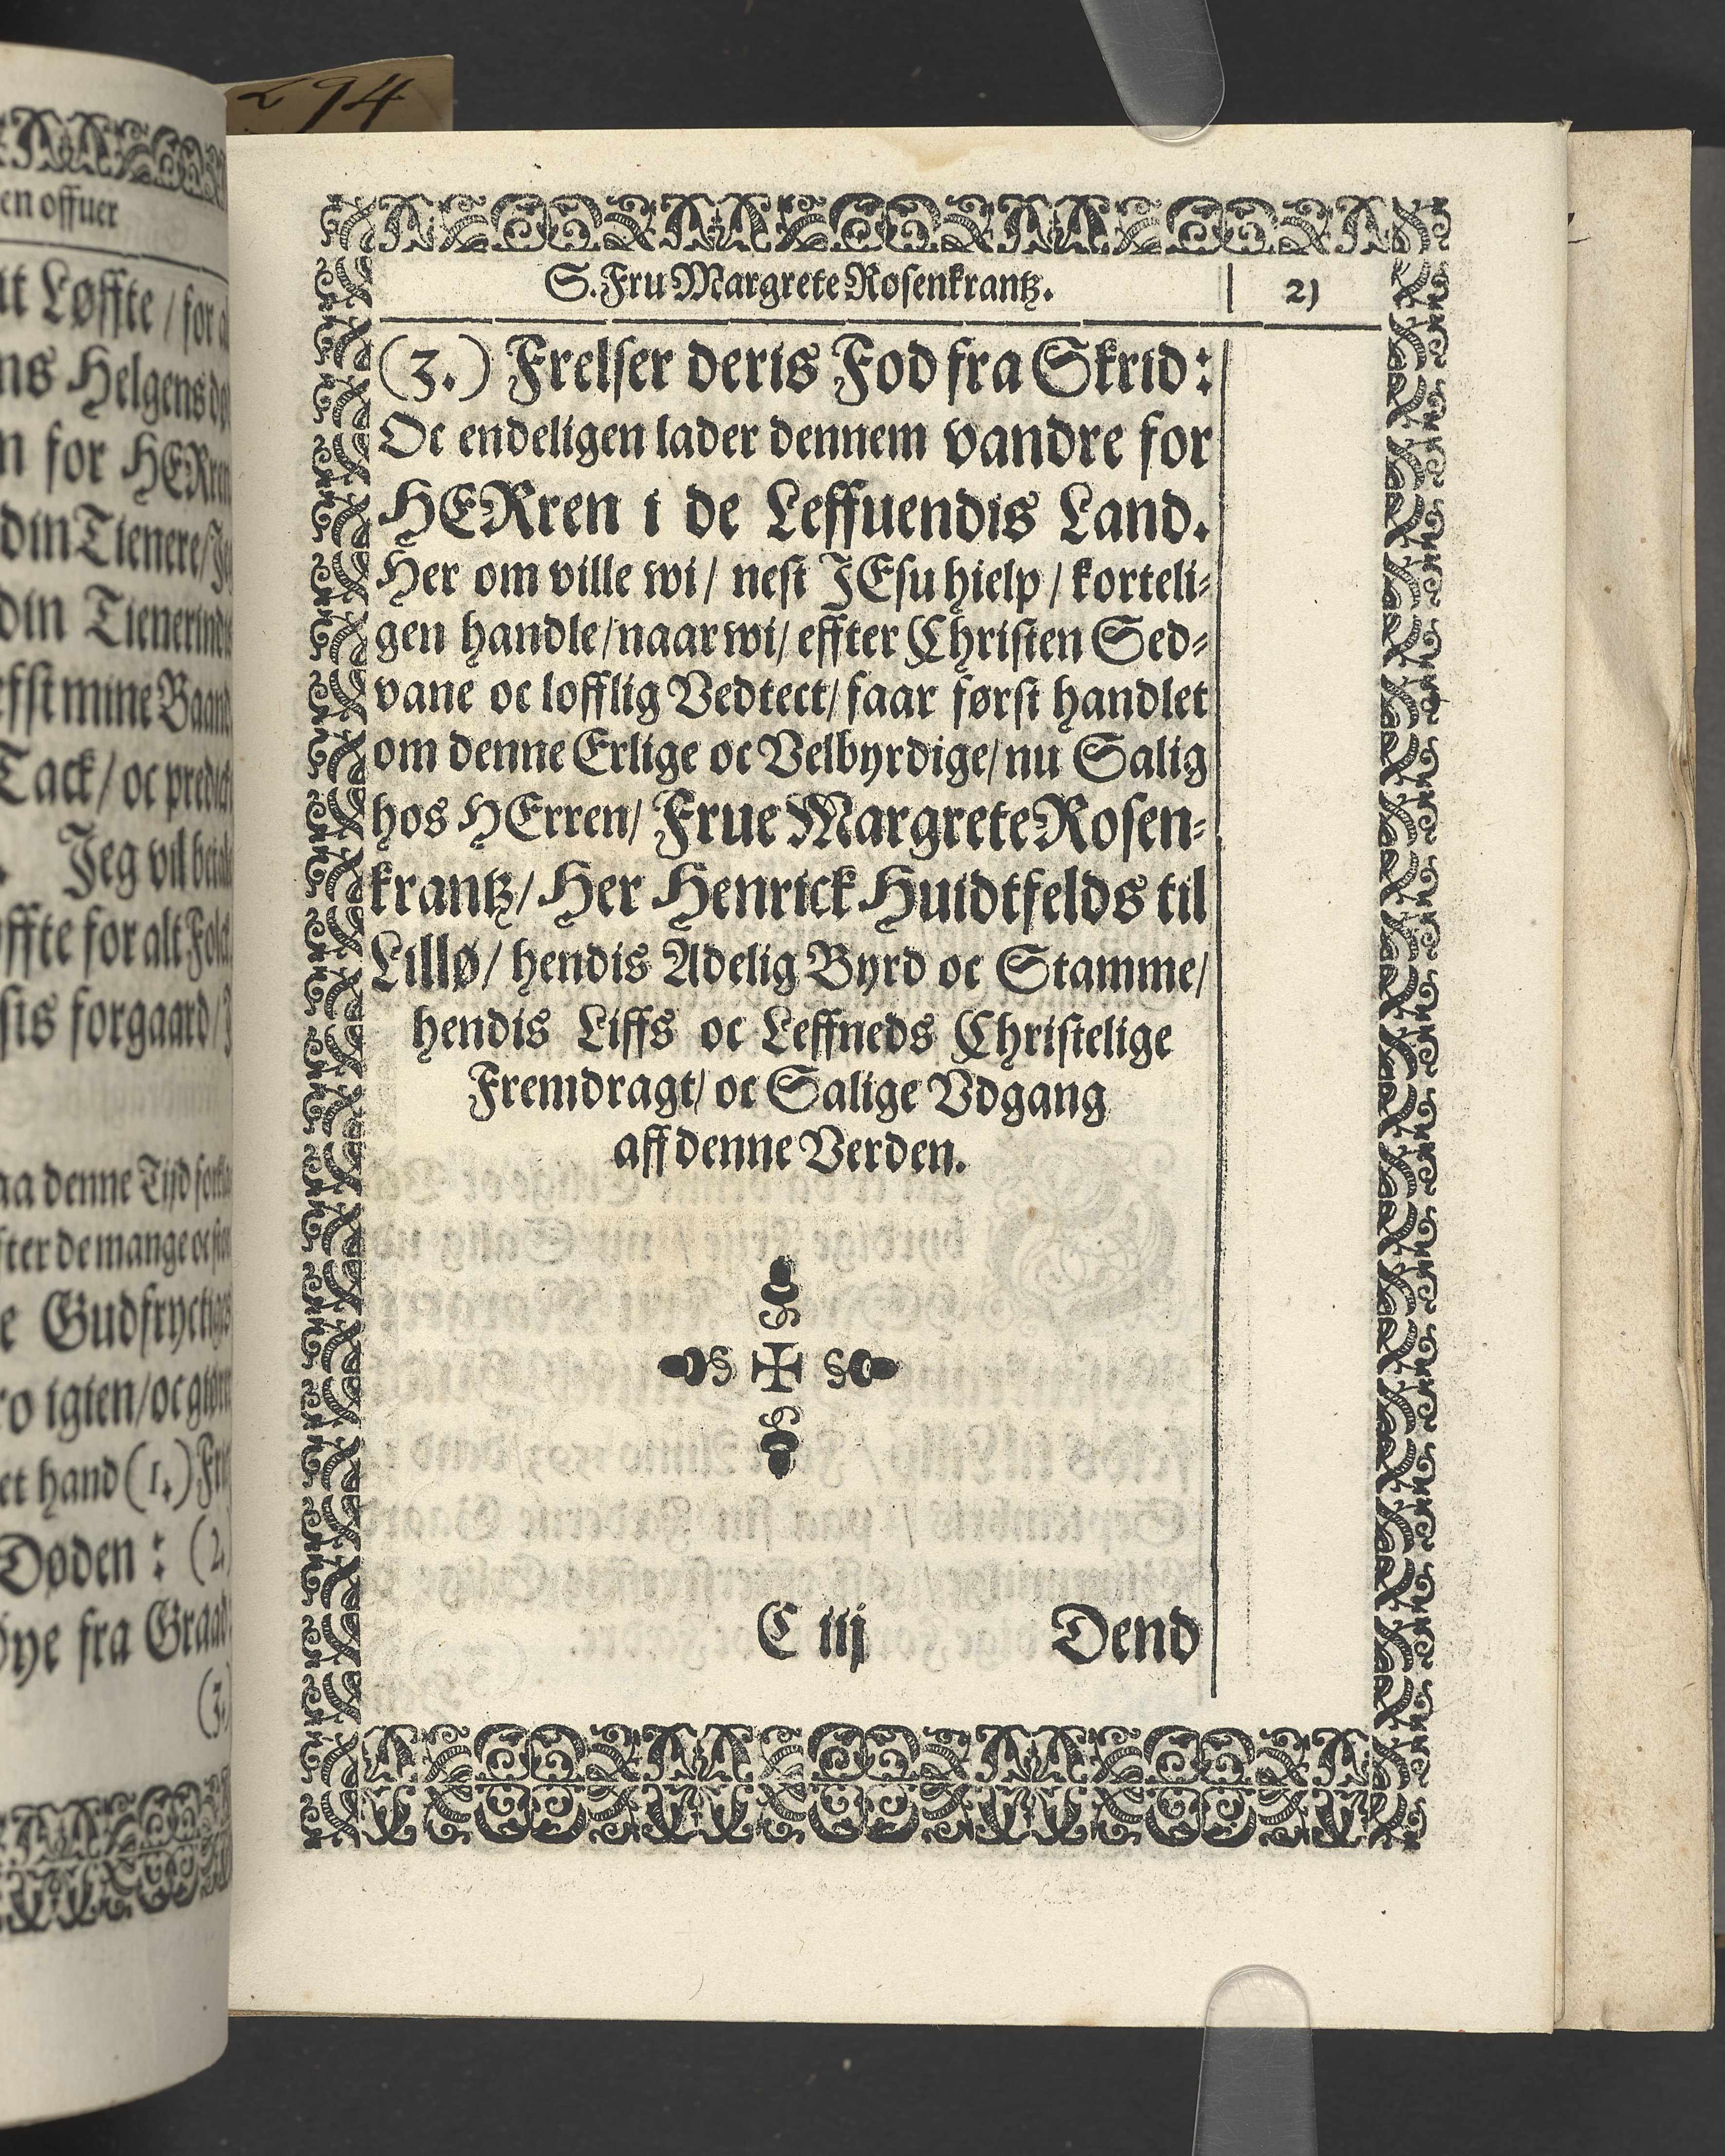 294
en offuer
Løffte / for
Helgens
n for HERren
din Tienere /
din Tienerindis
mine Baand
Tack / oc
Jeg vil
for alt Folck
forgaard /
denne Tijd
ter de mange oc
e Gudfryctige
igien / oc
et hand (1.)
Døden : (2.
øye fra Graad
(3.)
S. Fru Margrete Rosenkrantz. 21
(3.) Frelser deris Fod fra Skrid:
Oc endeligen lader dennem vandre for
HERren i de Leffuendis Land.
Her om ville wi / nest JEsu hielp / korteli-
gen handle / naar wi / effter Christen Sed-
vane oc lofflig Vedtect / faar først handlet
om denne Erlige oc Velbyrdige / nu Salig
hos HErren / Frue Margrete Rosen-
krantz / Her Henrick Huidtfelds til
Lillø / hendis Adelig Byrd oc Stamme /
hendis Liffs oc Leffneds Christelige
Fremdragt / oc Salige Vdgang
aff denne Verden.
C iij Dend